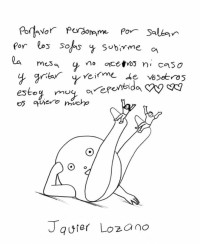 Porfavor Perdoname por Saltar
Por los sofas y subirme a
la mesa y no aceros ni caso
y gritar y reirme de vosotros
estoy muy arepentida
os quiero mucho
Javier Lozano